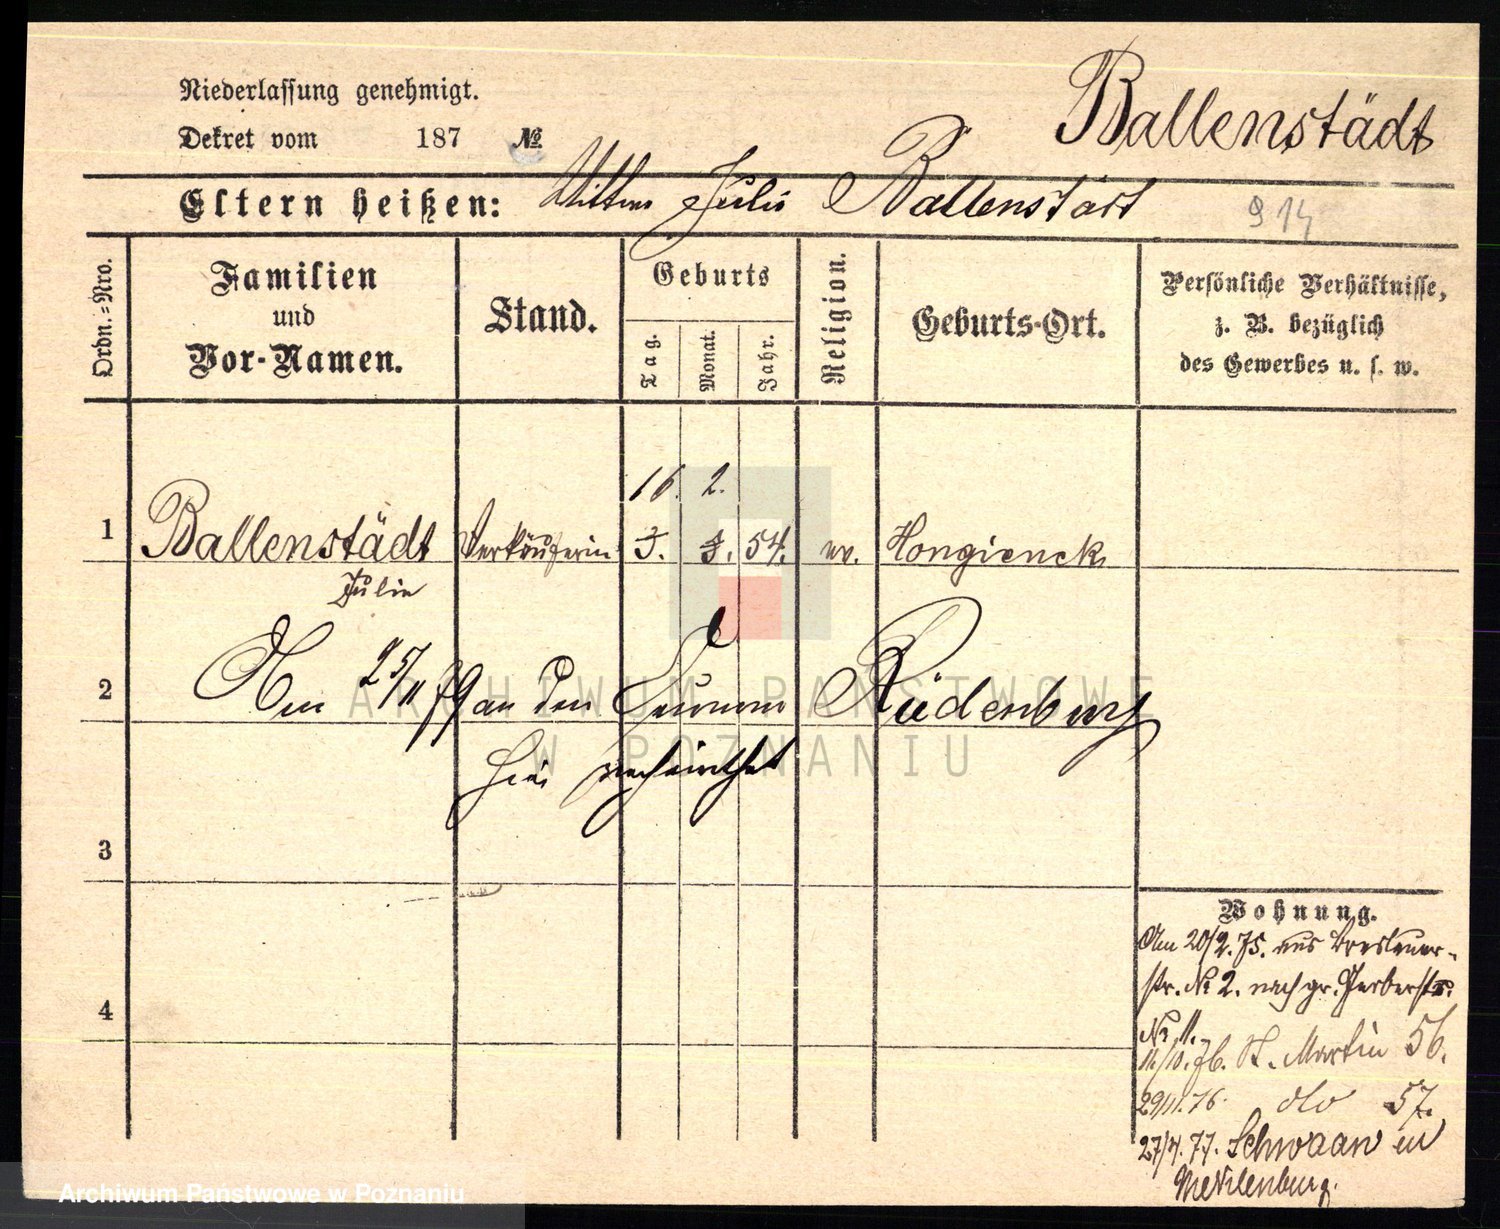 Niederlassung genehmigt.
Dekret vom 187 №
Ballenstädt
Eltern heißen: Julie Ballenstädt
914
Ordn.=Nro.
Familien
und
Vor-Namen.
Stand.
Geburts
Tag.
Monat.
Jahr.
Religion.
Geburts-Ort.
Persönliche Verhältnisse,
z. B. bezüglich
des Gewerbes u. s. w.
16. 2.
1 Ballenstädt Verkäuferin 3. 3. 54. ev.
Julie
2 Am 25/11 79 an den Rüdenburg
hier verheirathet
3
4
Wohnung.
Am 20/2. 75. aus Breslauer-
str. № 2. nach gr. Gerberstr.
№ 11.
11/10. 76. St. Martin 56.
29/11. 76. do 57.
27/4. 77. Schwaan in
Mecklenburg.
ARCHIWUM PAŃSTWOWE
W POZNANIU
Archiwum Państwowe w Poznaniu